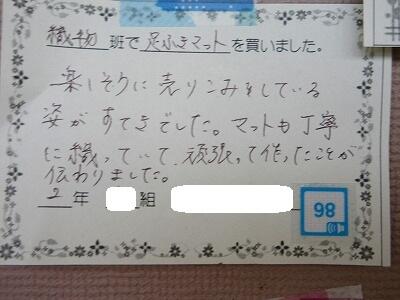 織物班で足ふきマットを買いました。
楽しそうに売りこみをしている
姿がすてきでした。マットも丁寧
に織っていて、頑張って作ったことが
伝わりました。
2年 組
98